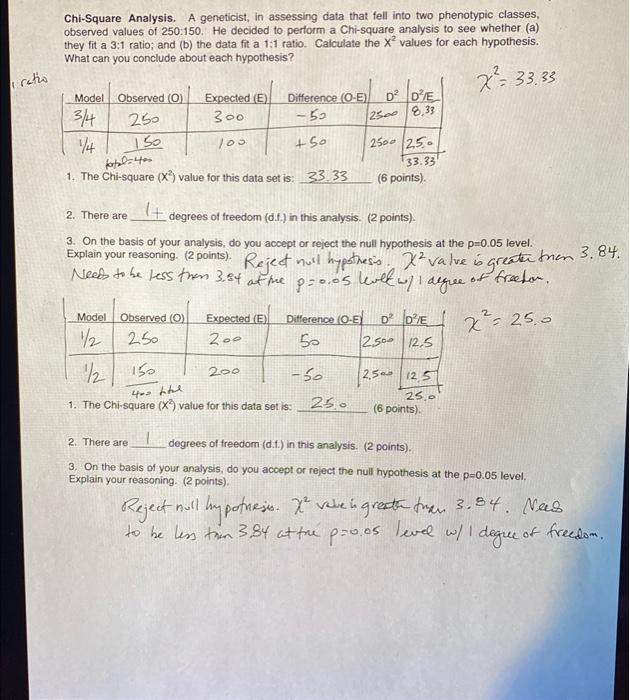 Chi-Square Analysis. A geneticist, in assessing data that fell into two phenotypic classes,
observed values of 250:150. He decided to perform a Chi-square analysis to see whether (a)
they fit a 3:1 ratio; and (b) the data fit a 1:1 ratio. Calculate the X² values for each hypothesis.
What can you conclude about each hypothesis?
ratio
χ² = 33.33
Model Observed (O) Expected (E) Difference (O-E) D² D²/E
3/4 250 300 -50 2500 8.33
1/4 150 100 +50 2500 25.0
total=400 33.33
1. The Chi-square (X²) value for this data set is: 33.33 (6 points).
2. There are 1 degrees of freedom (d.f.) in this analysis. (2 points).
3. On the basis of your analysis, do you accept or reject the null hypothesis at the p=0.05 level.
Explain your reasoning. (2 points). Reject null hypothesis. χ² value is greater than 3.84.
Needs to be less than 3.84 at the p=0.05 level w/ 1 degree of freedom.
Model Observed (O) Expected (E) Difference (O-E) D² D²/E χ² = 25.0
1/2 250 200 50 2500 12.5
1/2 150 200 -50 2,500 12.5
400 total 25.0
1. The Chi-square (X²) value for this data set is: 25.0 (6 points).
2. There are 1 degrees of freedom (d.f.) in this analysis. (2 points).
3. On the basis of your analysis, do you accept or reject the null hypothesis at the p=0.05 level.
Explain your reasoning. (2 points).
Reject null hypothesis. χ² value is greater than 3.84. Needs
to be less than 3.84 at the p=0.05 level w/ 1 degree of freedom.